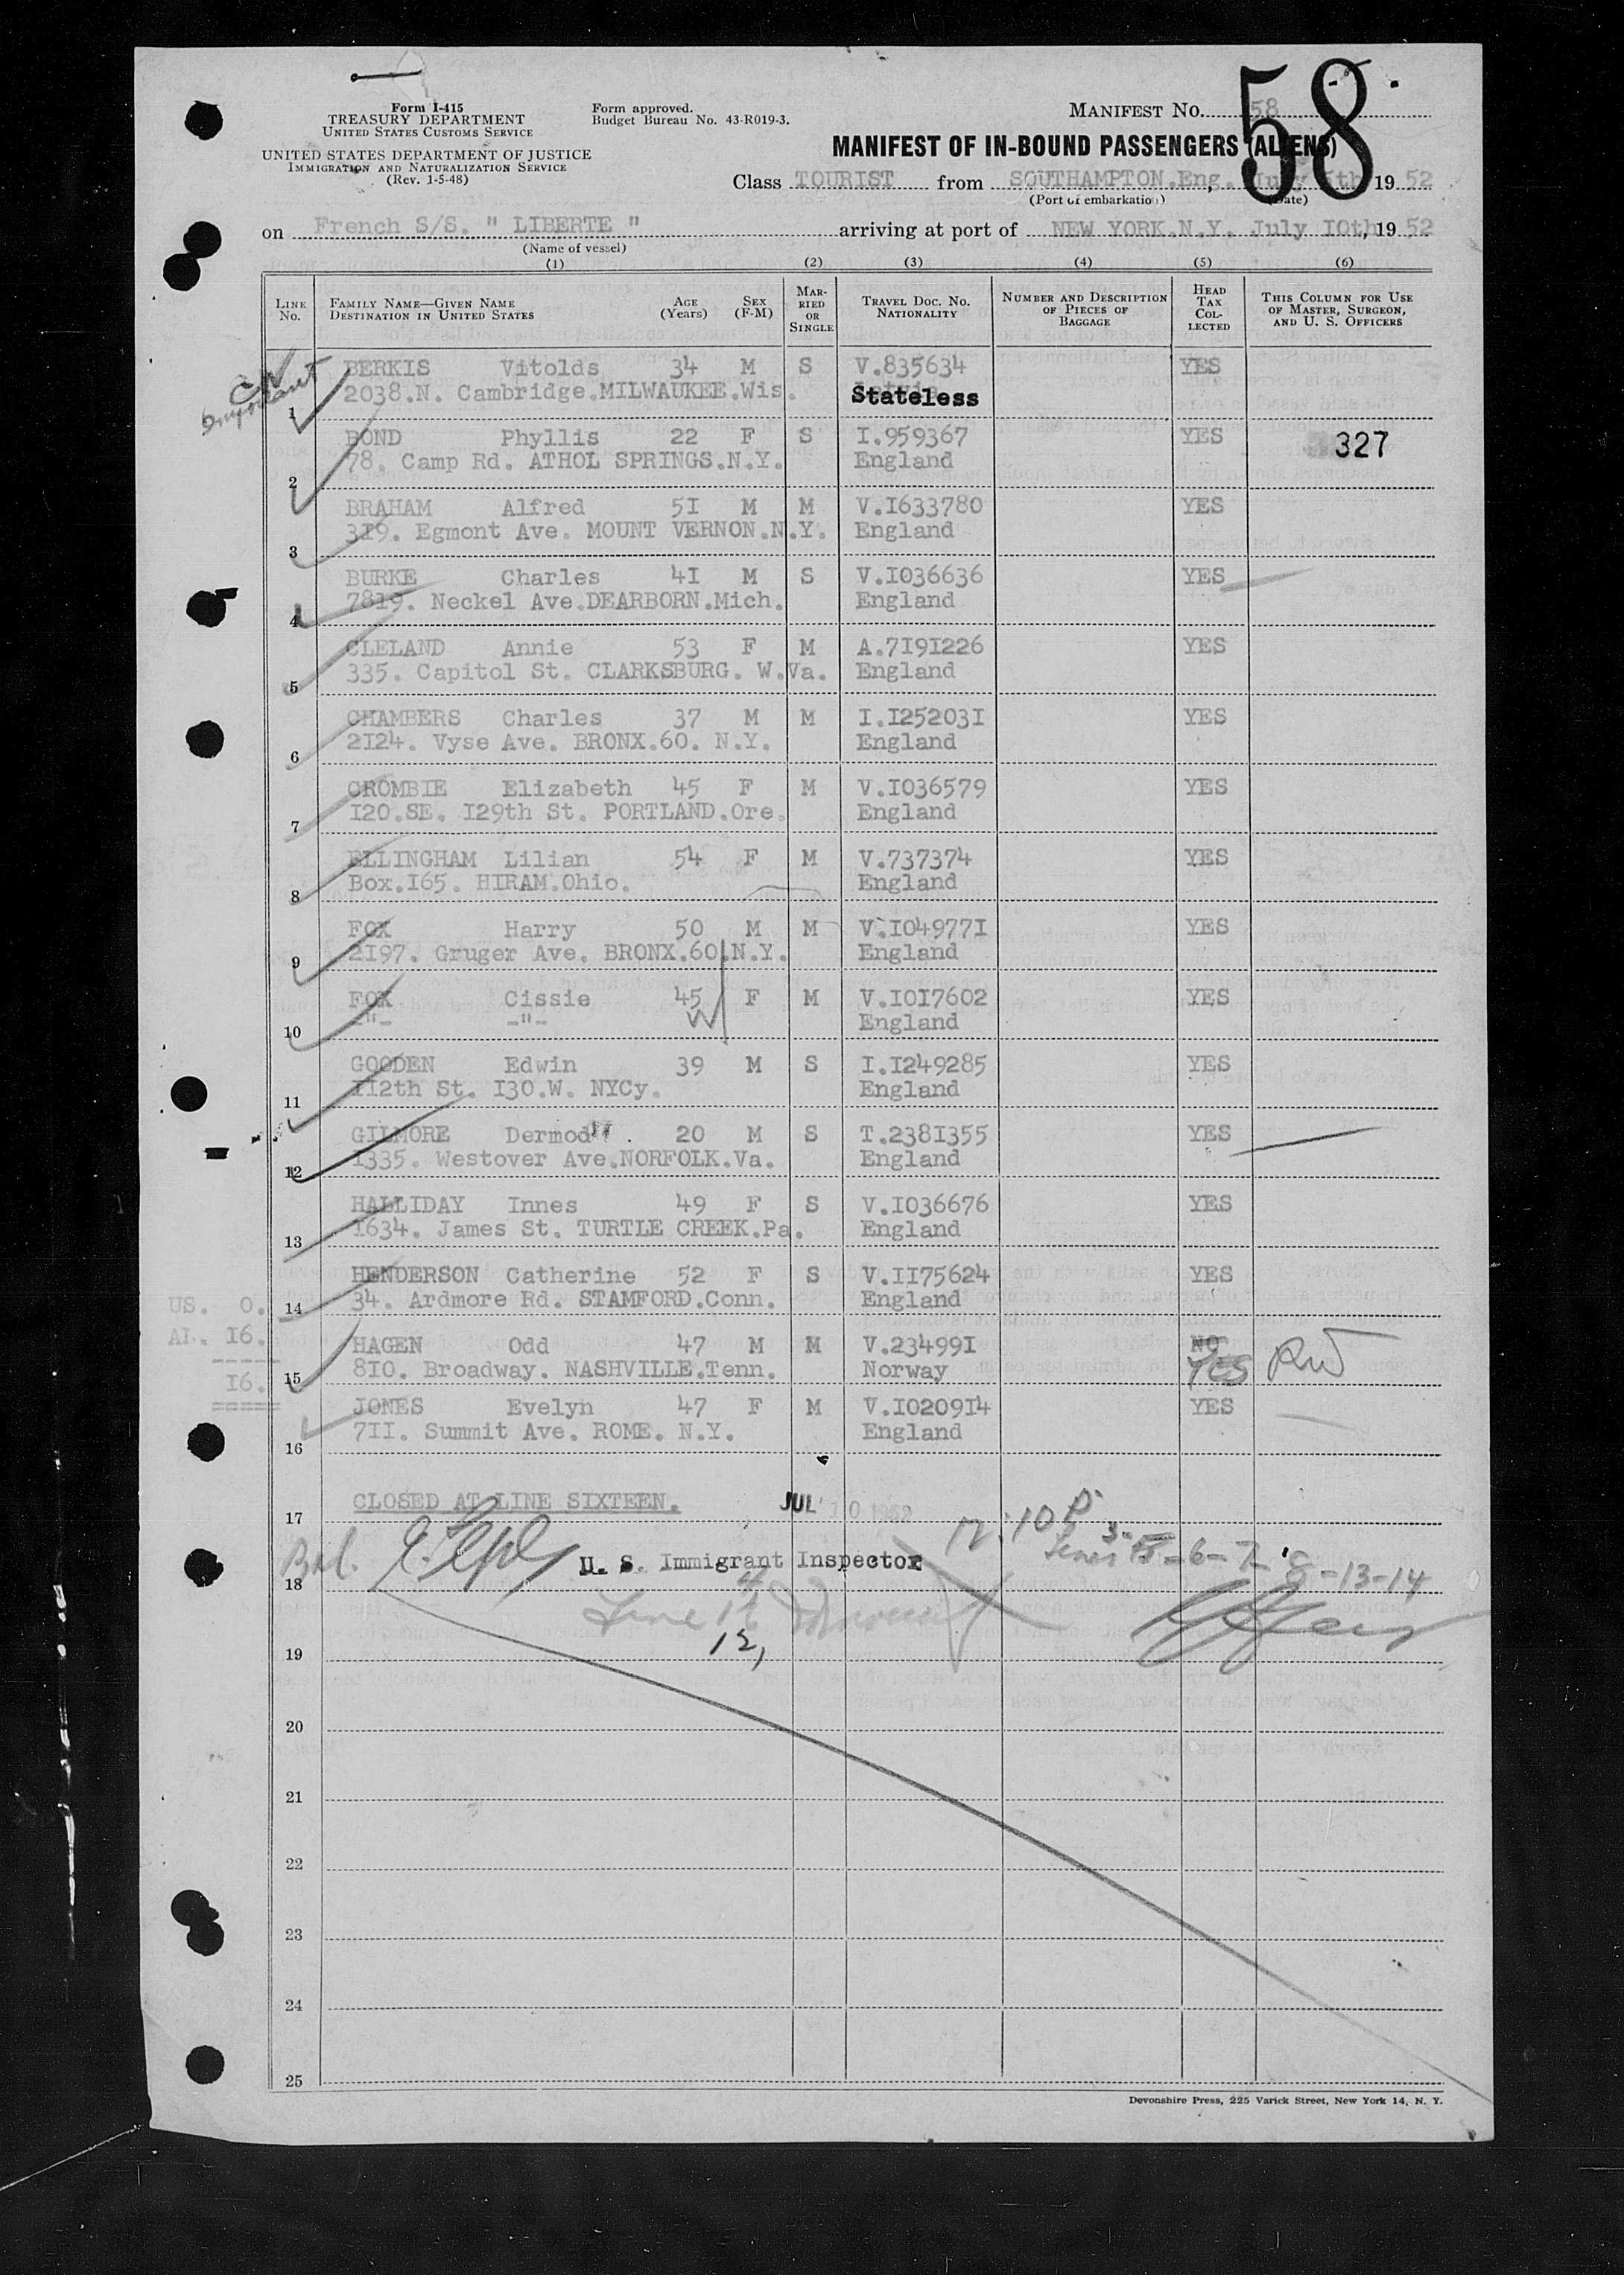 58
Form I-415
TREASURY DEPARTMENT
UNITED STATES CUSTOMS SERVICE
UNITED STATES DEPARTMENT OF JUSTICE
IMMIGRATION AND NATURALIZATION SERVICE
(Rev. 1-5-48)
Form approved.
Budget Bureau No. 43-R019-3.
MANIFEST No. 58
MANIFEST OF IN-BOUND PASSENGERS (ALIENS)
Class TOURIST from SOUTHAMPTON.Eng., July 19 52
(Port of embarkation) (Date)
on French S/S. " LIBERTE " arriving at port of NEW YORK.N.Y. July IOth, 19 52
(Name of vessel)
(1) (2) (3) (4) (5) (6)
LINE No. FAMILY NAME—GIVEN NAME DESTINATION IN UNITED STATES AGE (Years) SEX (F-M) MARRIED OR SINGLE TRAVEL DOC. No. NATIONALITY NUMBER AND DESCRIPTION OF PIECES OF BAGGAGE HEAD TAX COLLECTED THIS COLUMN FOR USE OF MASTER, SURGEON, AND U. S. OFFICERS
BERKIS Vitolds 34 M S V.835634 YES
1 2038.N. Cambridge.MILWAUKEE.Wis. Latvia Stateless
Important
BOND Phyllis 22 F S I.959367 YES 327
2 78. Camp Rd. ATHOL SPRINGS.N.Y. England
BRAHAM Alfred 5I M M V.I633780 YES
3 3I9. Egmont Ave. MOUNT VERNON.N.Y. England
BURKE Charles 4I M S V.I036636 YES
4 78I9. Neckel Ave.DEARBORN.Mich. England
CLELAND Annie 53 F M A.7I9I226 YES
5 335. Capitol St. CLARKSBURG. W.Va. England
CHAMBERS Charles 37 M M I.I25203I YES
6 2I24. Vyse Ave. BRONX.60. N.Y. England
CROMBIE Elizabeth 45 F M V.I036579 YES
7 I20.SE. I29th St. PORTLAND.Ore. England
ELLINGHAM Lilian 54 F M V.737374 YES
8 Box.I65. HIRAM.Ohio. England
FOX Harry 50 M M V.I04977I YES
9 2I97. Gruger Ave. BRONX.60.N.Y. England
FOX Cissie 45 F M V.I0I7602 YES
10 -"- -"- England
GOODEN Edwin 39 M S I.I249285 YES
11 II2th St. I30.W. NYCy. England
GILMORE Dermod 20 M S T.238I355 YES
12 I335. Westover Ave.NORFOLK.Va. England
HALLIDAY Innes 49 F S V.I036676 YES
13 I634. James St. TURTLE CREEK.Pa. England
HENDERSON Catherine 52 F S V.II75624 YES
14 34. Ardmore Rd. STAMFORD.Conn. England
US. 0.
AL. I6.
I6.
HAGEN Odd 47 M M V.23499I NO
15 8I0. Broadway. NASHVILLE.Tenn. Norway YES RW
JONES Evelyn 47 F M V.I0209I4 YES
16 7II. Summit Ave. ROME. N.Y. England
17 CLOSED AT LINE SIXTEEN. JUL 10 1952
12:10 P
18 U. S. Immigrant Inspector
Lines 3-5-6-7-8-13-14
Line
12,
19
20
21
22
23
24
25
Devonshire Press, 225 Varick Street, New York 14, N. Y.